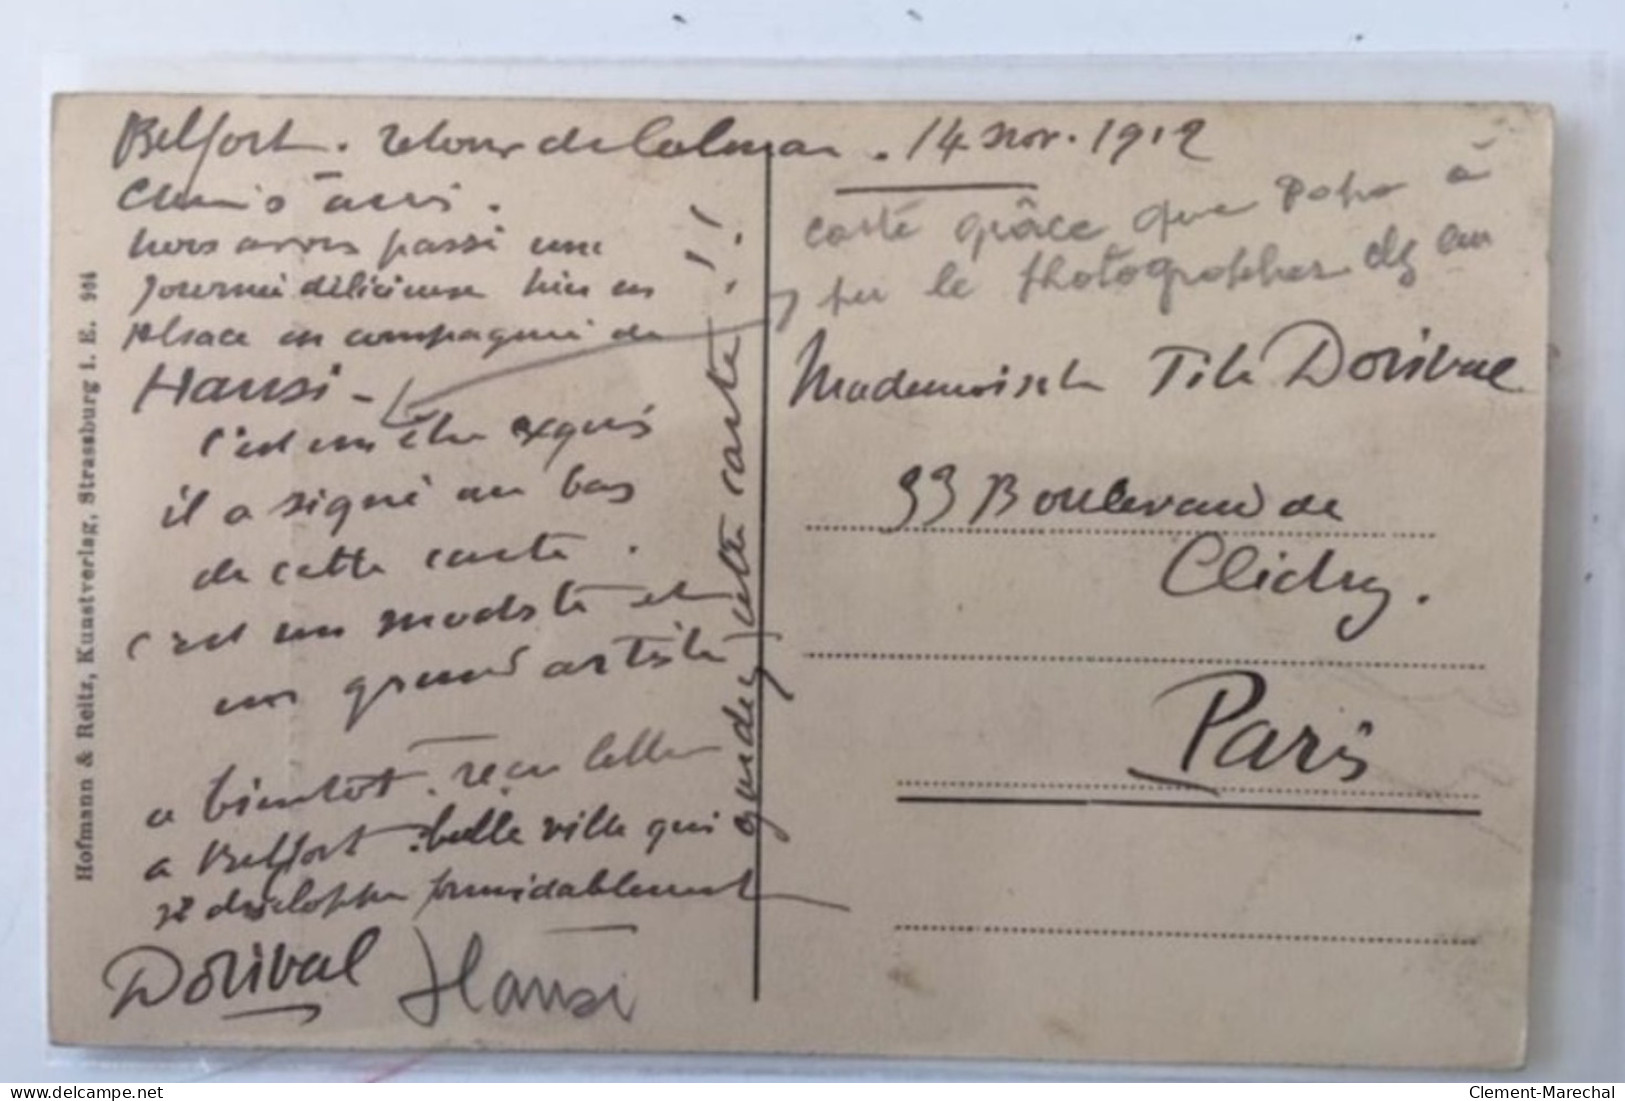 Belfort. retour de Colmar. 14 nov. 1912
nous avons passé une
journée délicieuse hier en
Alsace en compagnie de
Hansi -
c'est un être exquis
il a signé au bas
de cette carte.
c'est un modeste et
un grand artiste
a bientôt. reçu lettre
a Belfort. belle ville qui
se développe formidablement
Dorival Hansi
gardez cette carte!!
carte grâce que Papa a
pu le photographier
Mademoiselle Dorival
33 Boulevard de
Clichy.
Paris
Hofmann & Reitz, Kunstverlag, Strassburg i. E. 934
delcampe.net
Clement-Marechal